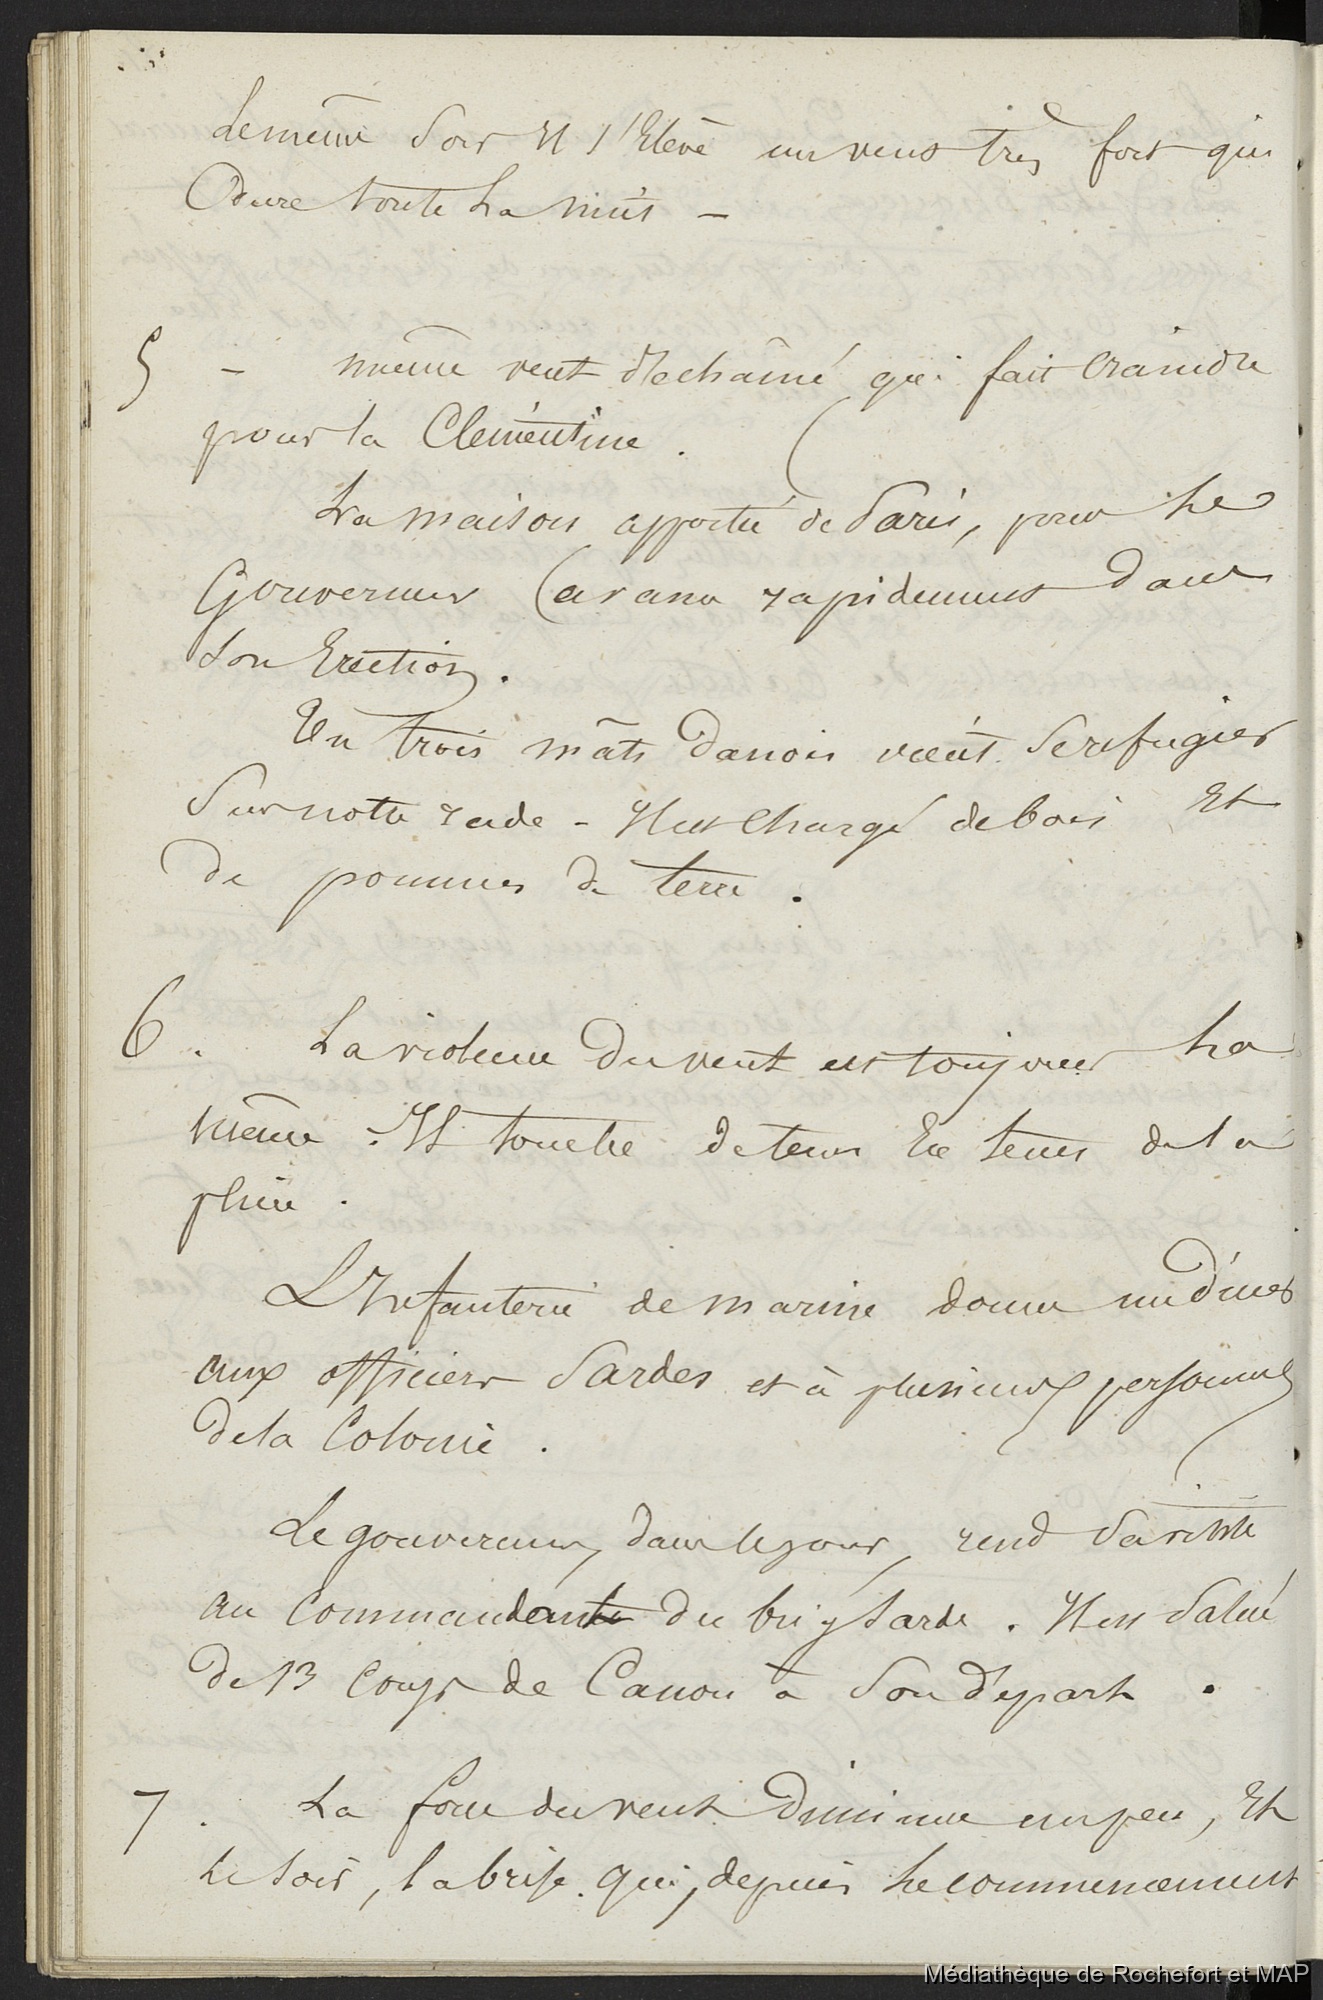 Le même soir Il s'élève un vent très fort qui
dure toute la nuit —
5 - même vent déchaîné qui fait craindre
pour la Clémentine.
La maison apportée de Paris, pour le
Gouverneur avance rapidement dans
son Erection.
Un trois mâts danois vient se refugier
Sur notre rade - Il est chargé de bois Et
de pommes de terre.
6. La violence du vent est toujours la
même. Il tombe de tems En tems de la
pluie.
L'Infanterie de marine donne un dîner
aux officiers Sardes et à plusieurs personnes
de la Colonie.
Le gouverneur, dans le jour, rend sa visite
au commandant du brig sarde. Il est salué
de 13 coups de Canon à son départ.
7. La force du vent diminue un peu, Et
le soir, la brise qui, depuis le commencement
Médiathèque de Rochefort et MAP